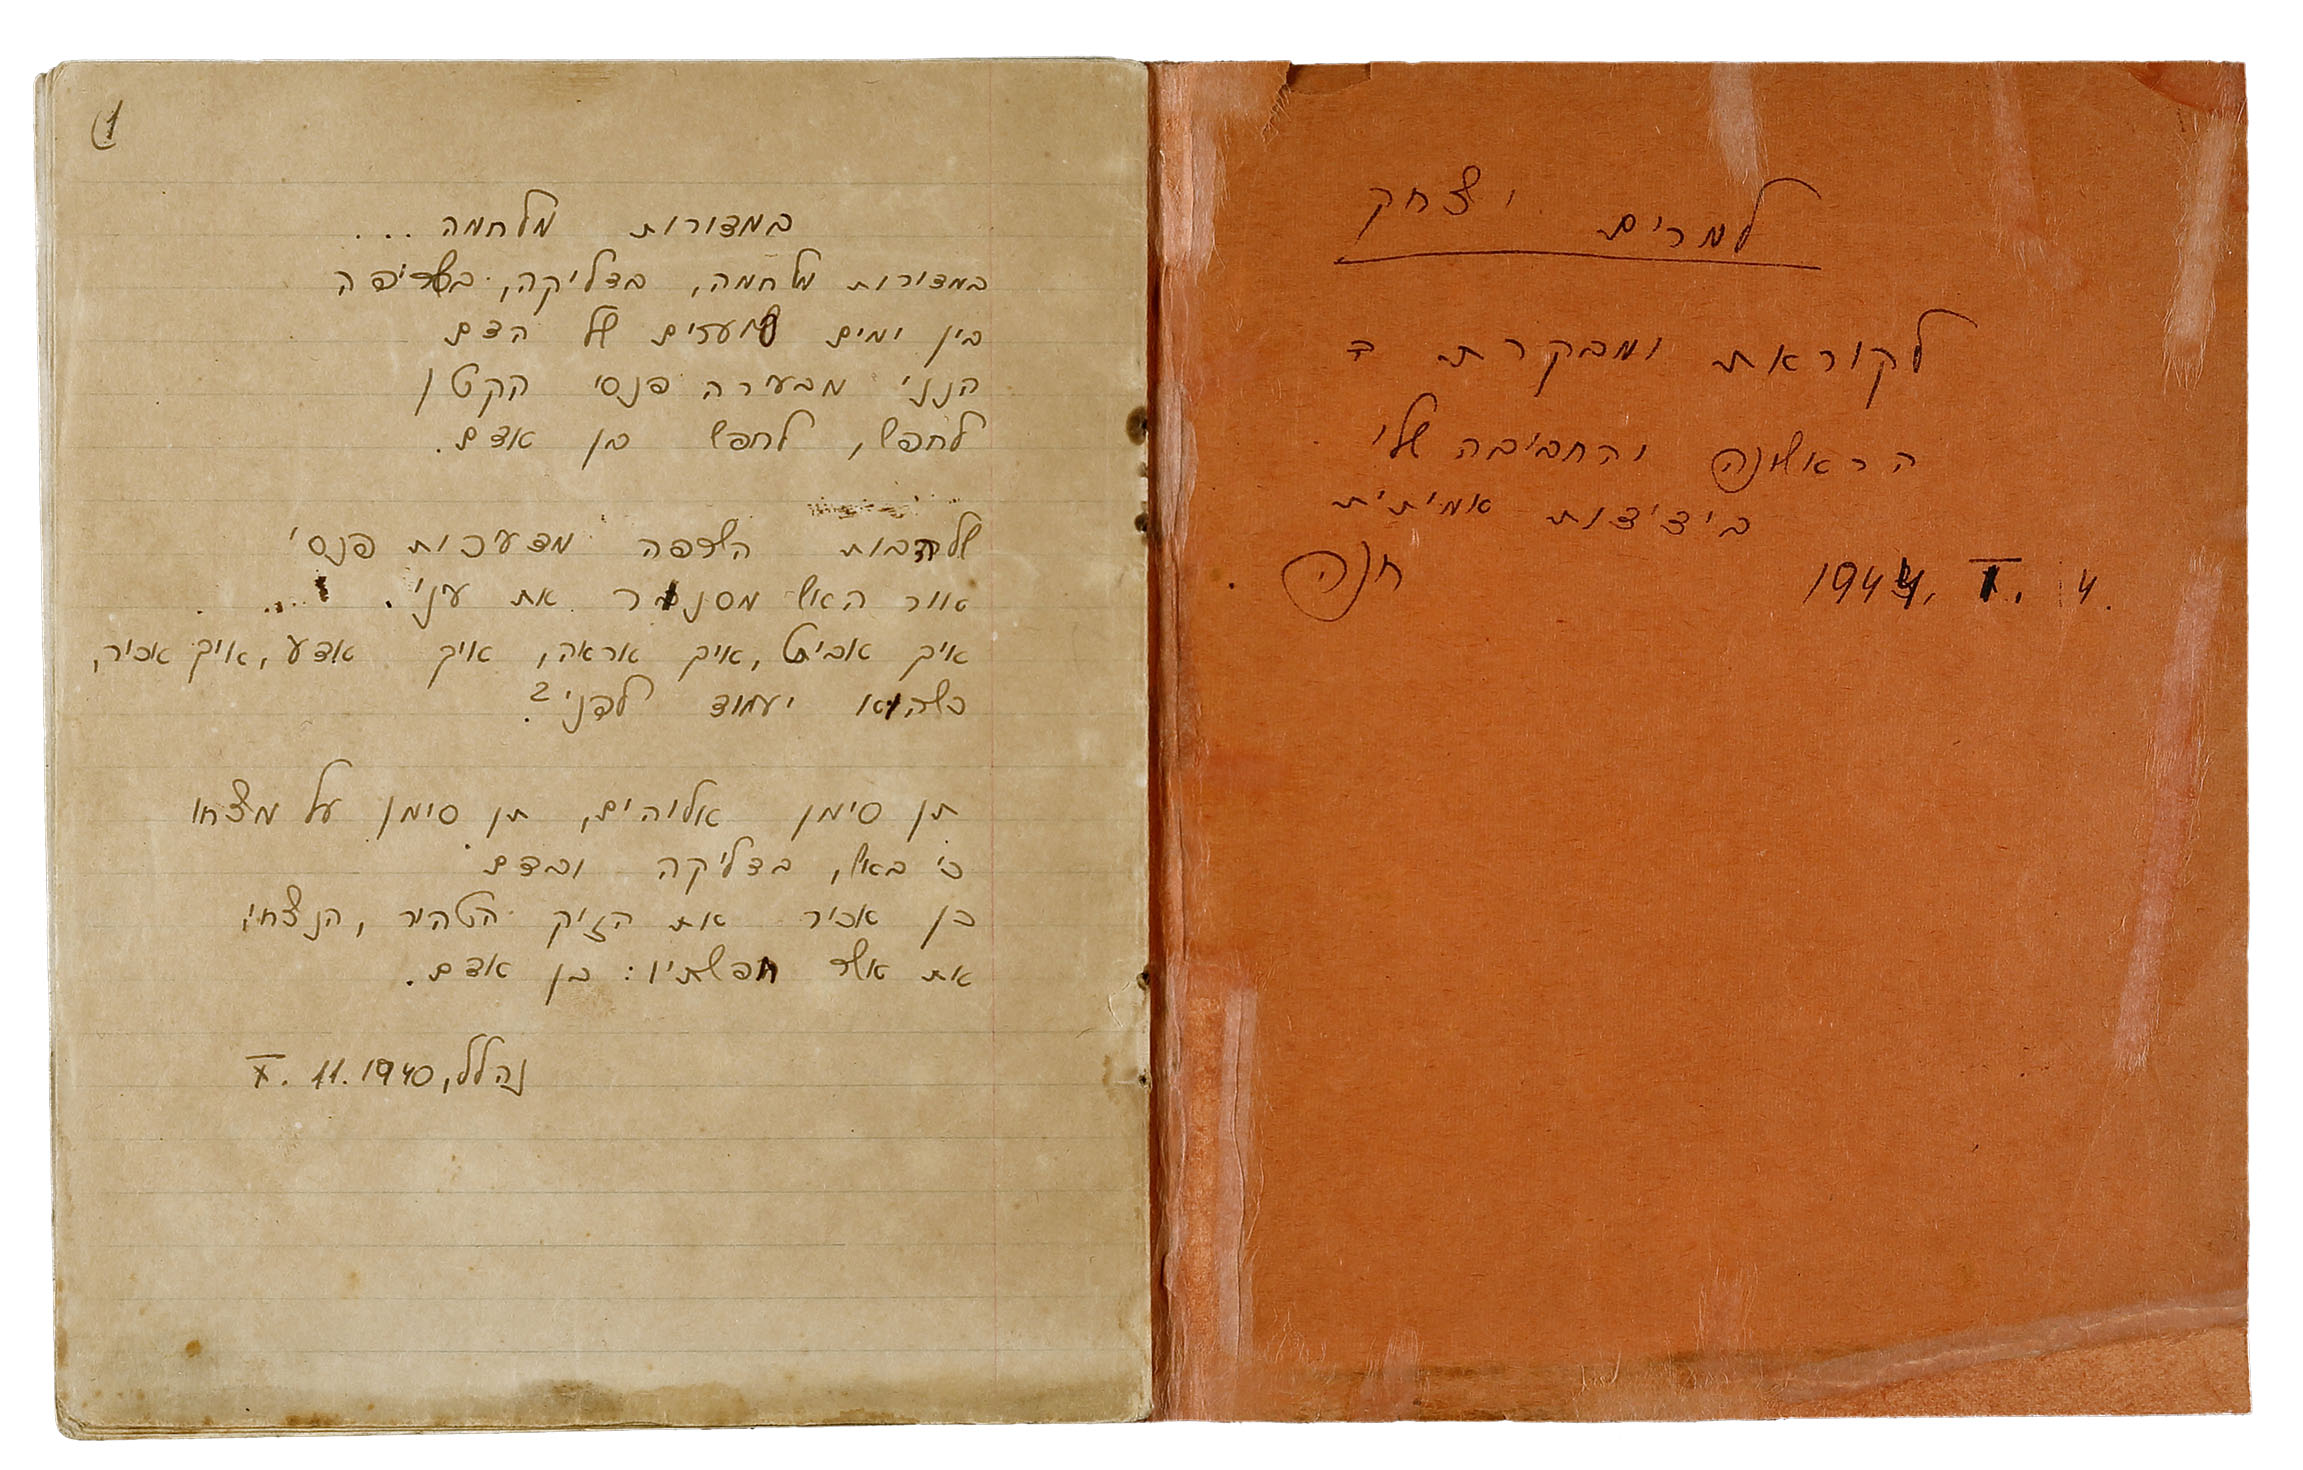 למרים יצחק
לקוראת ומבקרת ה
הראשונה והחביבה שלי
בידידות אמיתית
חנה
1944. I. 4.
(1
במדורות מלחמה...
במדורות מלחמה, בדליקה, בשריפה
בין ימים סוערים של הדם
הנני מבעירה פנסי הקטן
לחפש, לחפש בן אדם.
שלהבות השרפה מדעיכות פנסי
אור האש מסנור את עני.
איך אביט, איך אראה, איך אדע, איך אכיר,
כשהוא יעמוד לפני?
תן סימן אלוהים, תן סימן על מצחו
כי באש, בדליקה ובדם
כן אכיר את הזיק הטהור, הנצחי,
את אשר חפשתיו: בן אדם.
נהלל, 1940 .11 .X